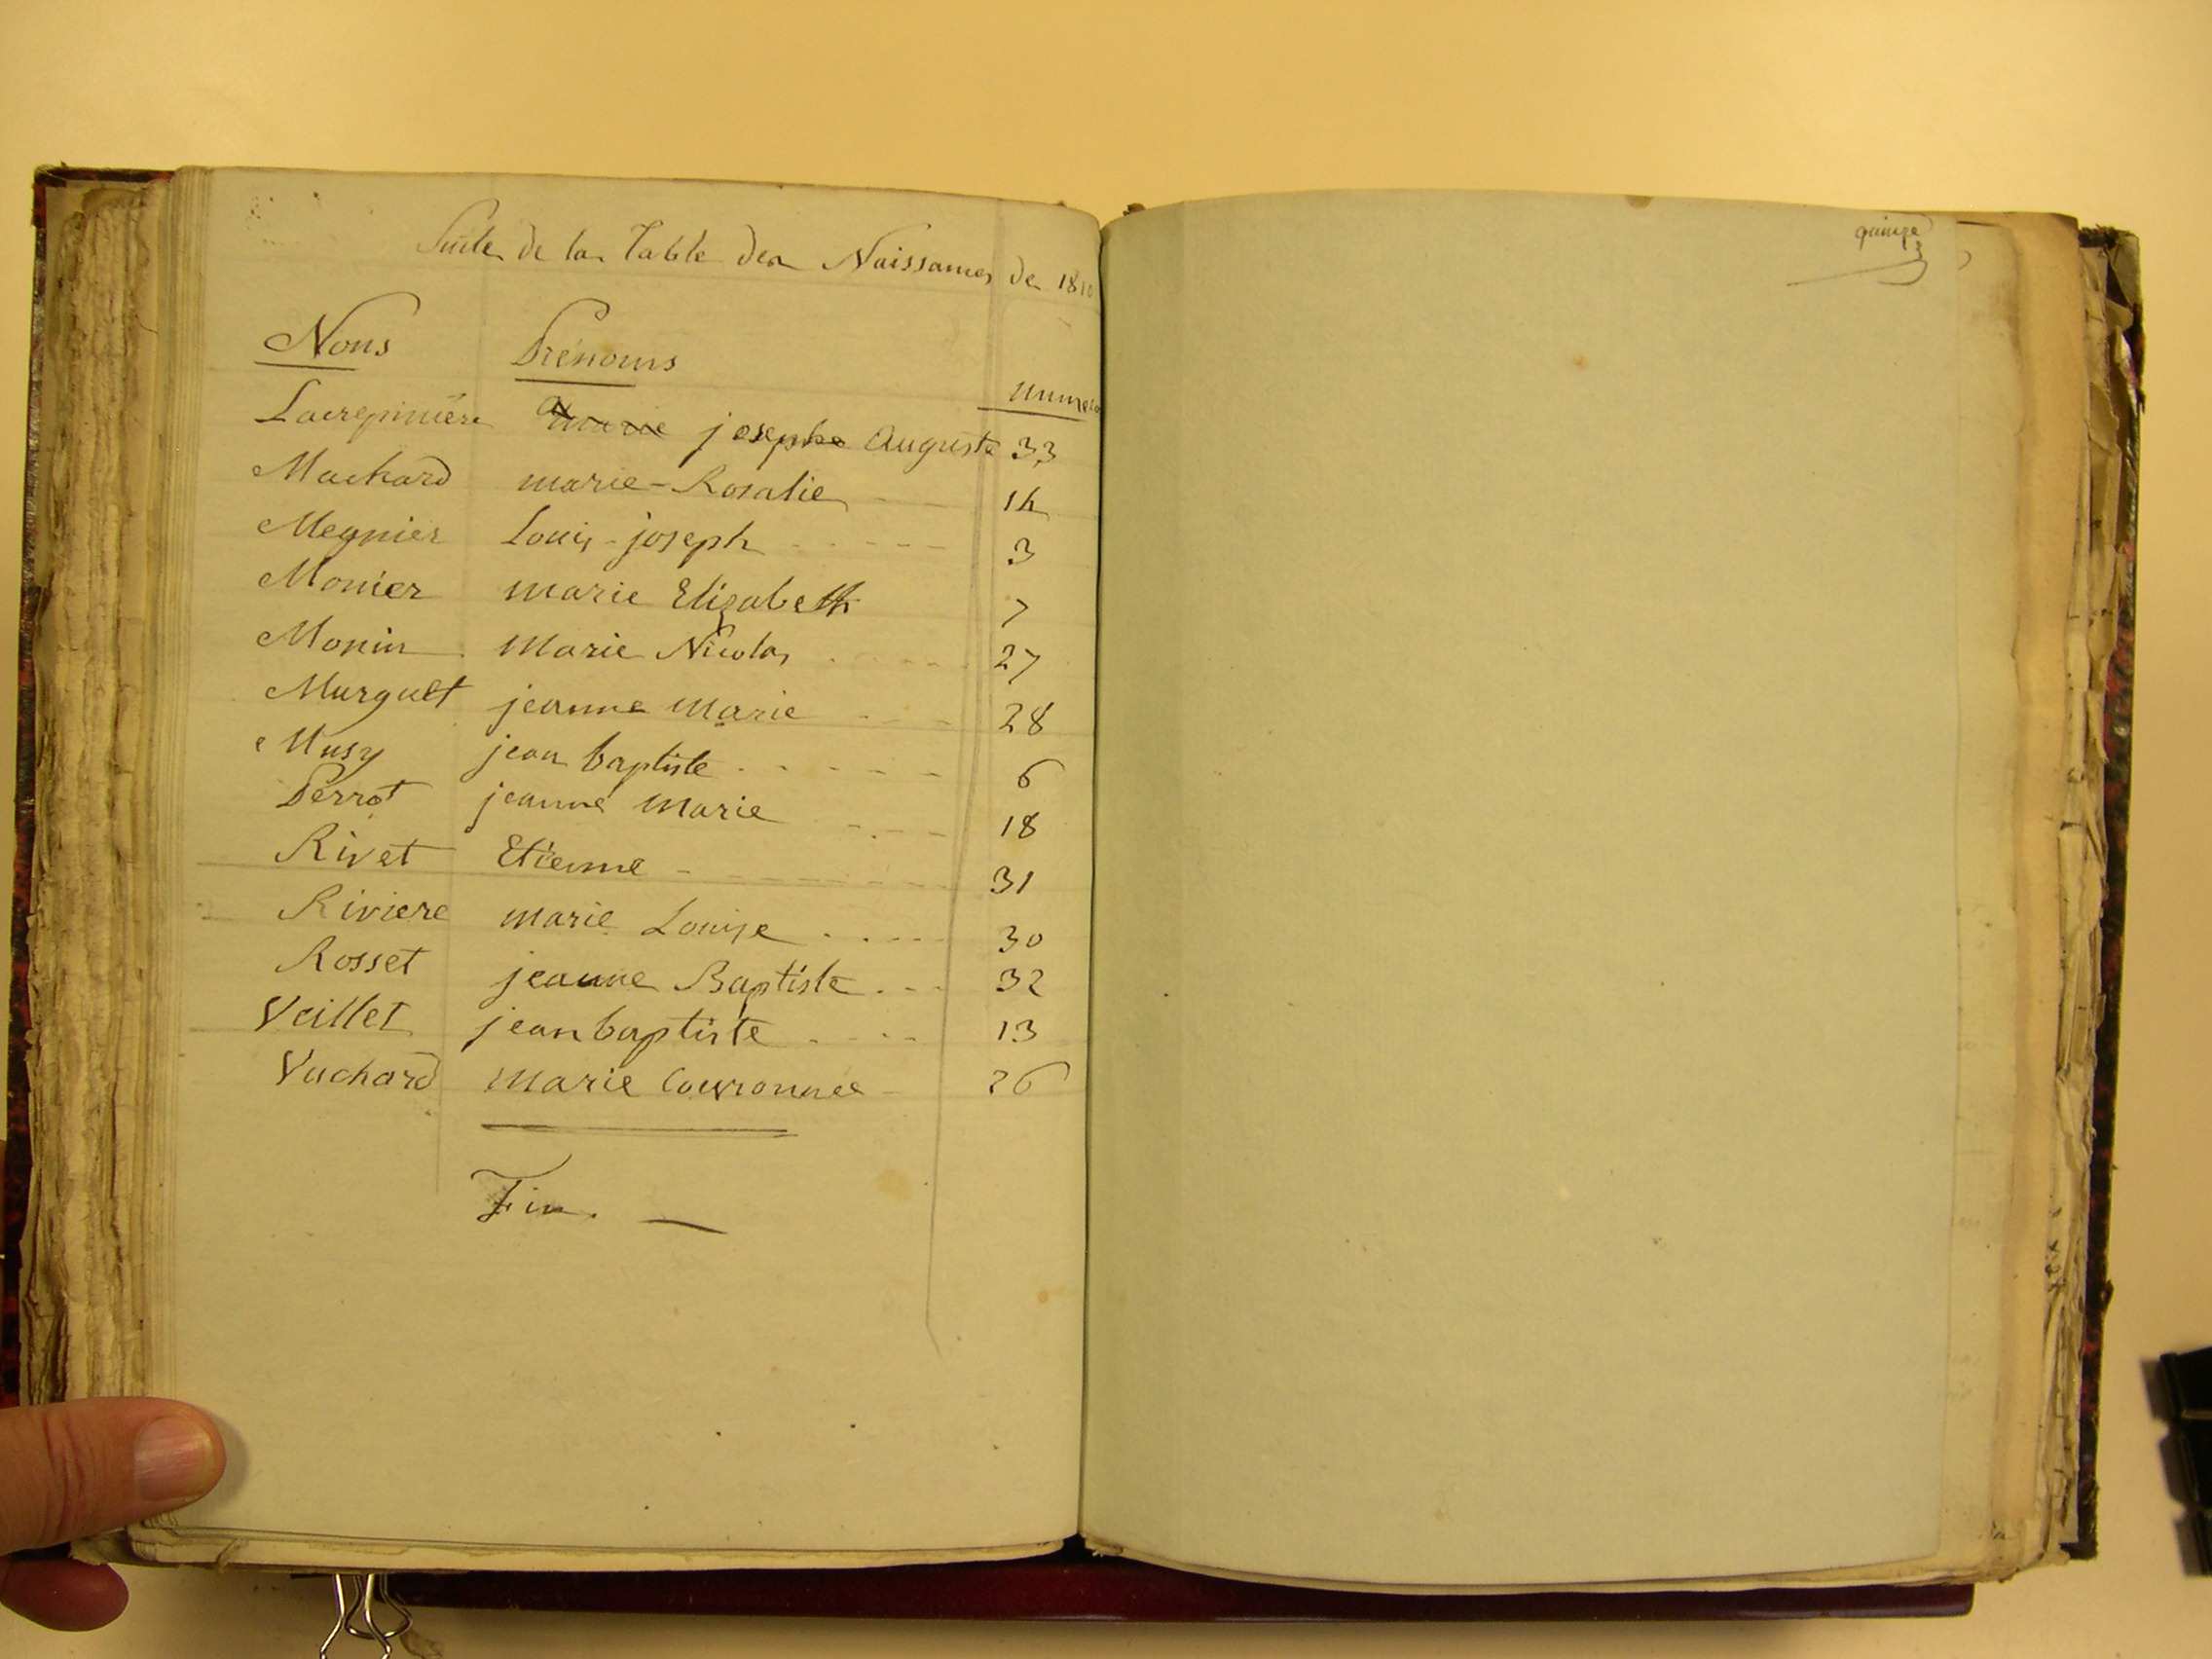 Suite de la Table des Naissances de 1810
Noms Prénoms numero
Lacrepinière josephe Auguste 33
Machard marie-Rosalie 14
Megnier Louis-joseph 3
Monier marie Elizabeth 7
Monin Marie Nicolas 27
Murguet jeanne Marie 28
Musy jean baptiste 6
Perrot jeanne Marie 18
Rivet Etienne 31
Riviere marie Louise 30
Rosset jeanne Baptiste 32
Veillet jean baptiste 13
Vuchard Marie Couronnée 26
Fin.
quinze